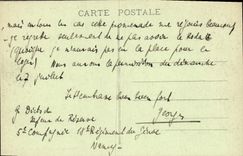 CARTE POSTALE
mais en tous les cas cette promenade me réjouit beaucoup
je regrette seulement de ne pas avoir le Kodak
(quoique je n'aurais pas eu la place pour en
Nous aurons la permission du dimanche
7 juillet
Je t'embrasse bien bien fort
Georges
G
de Réserve
5e Compagnie Régiment du Génie
Nancy